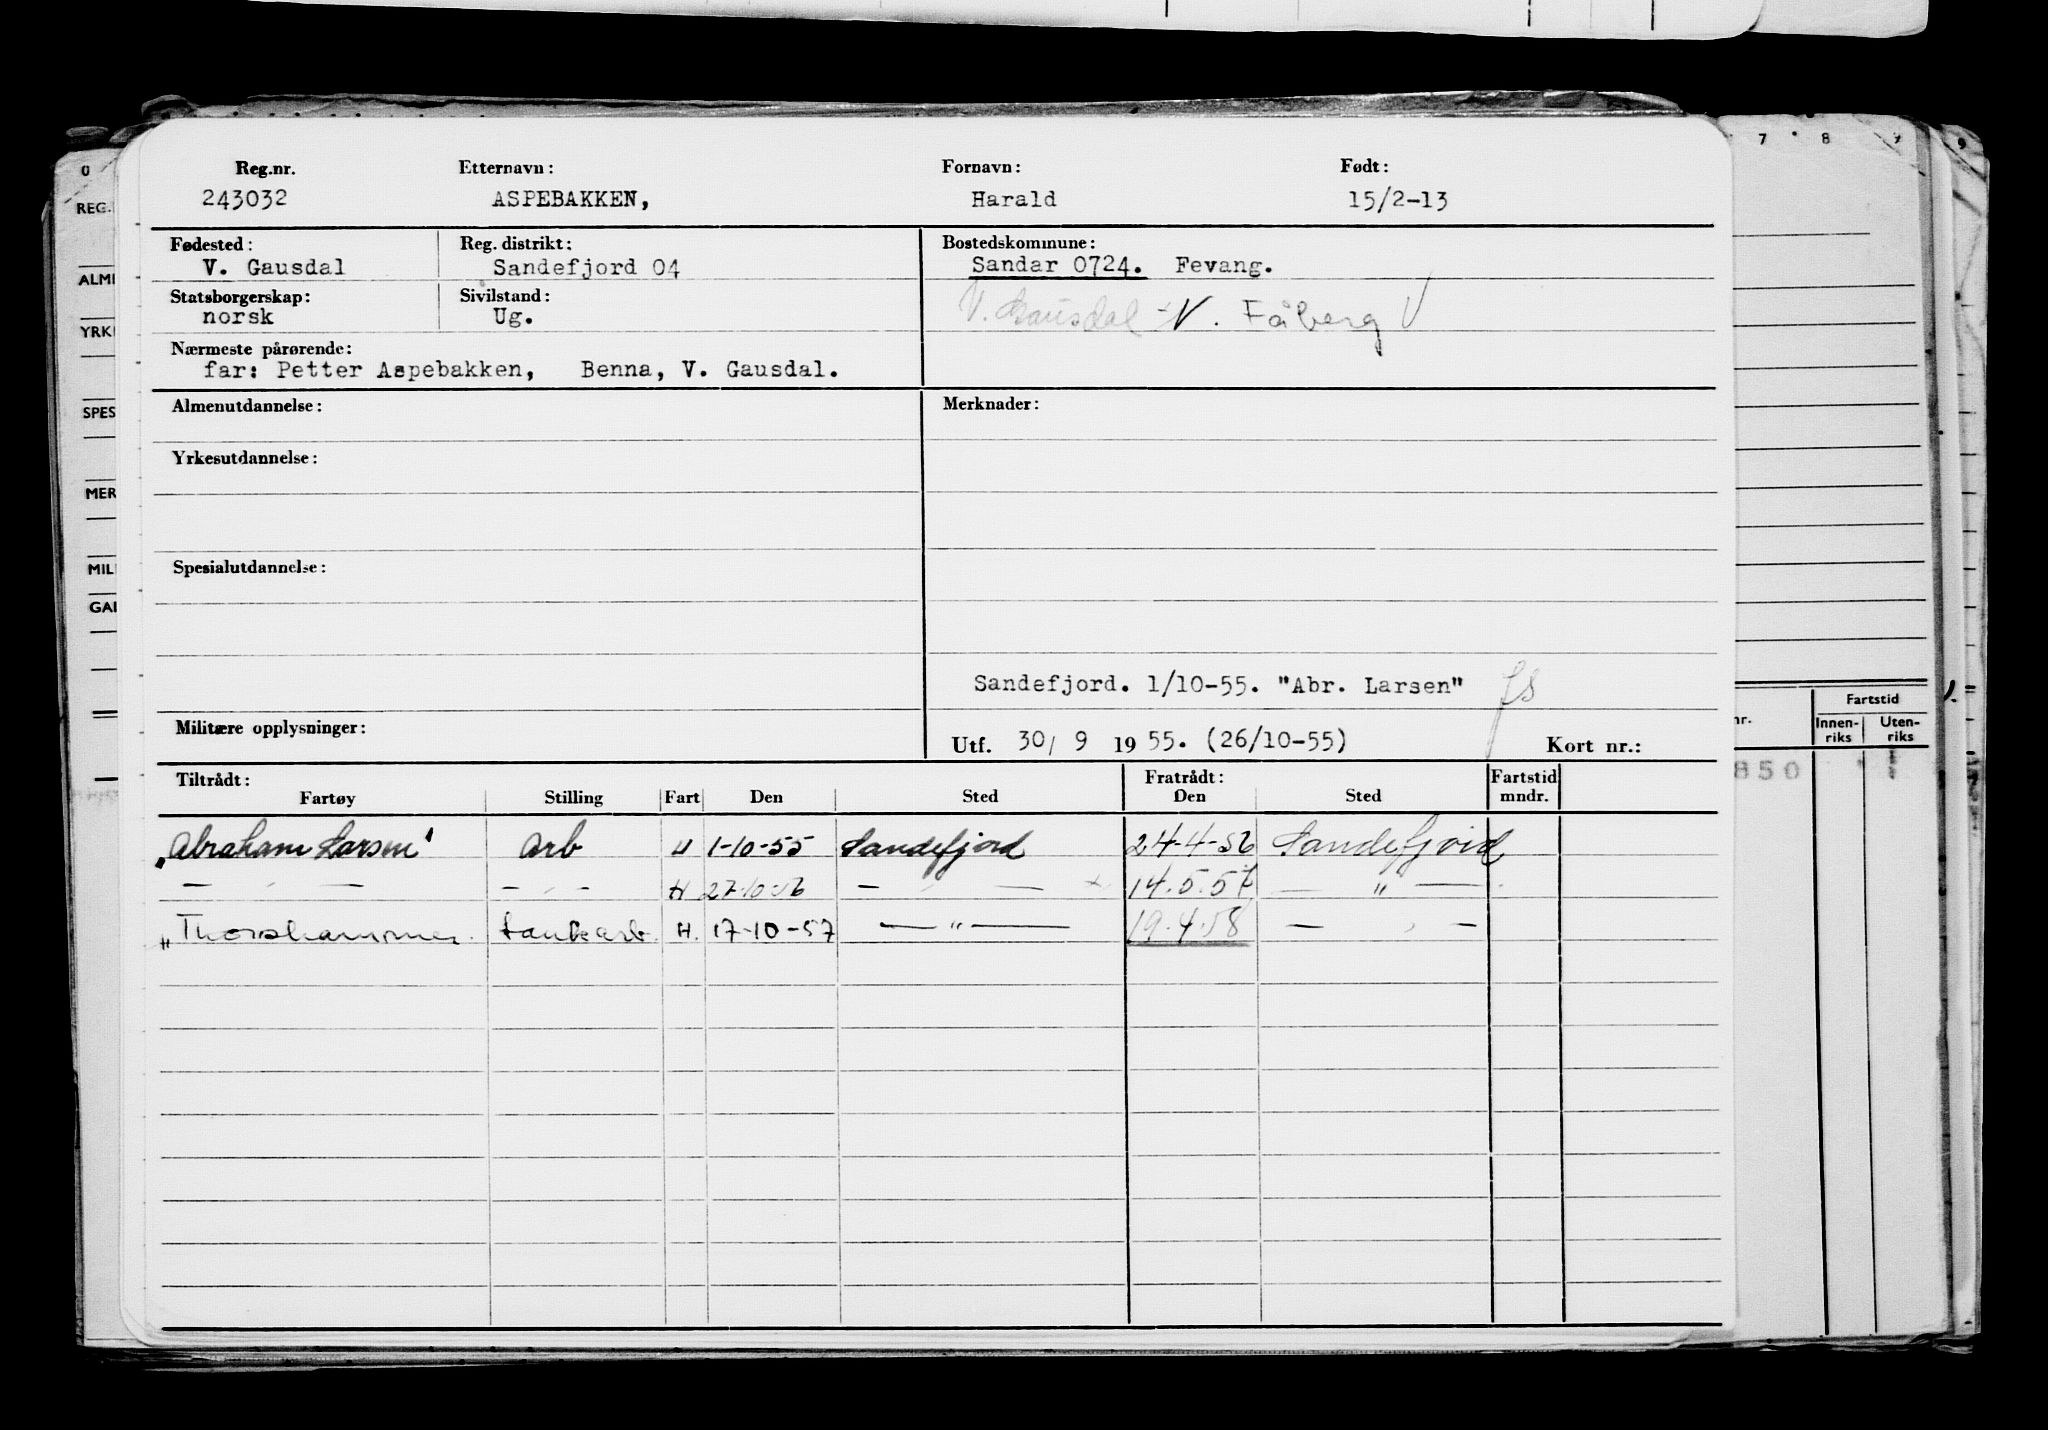 0 7 8 9 9
Reg.nr. Etternavn: Fornavn: Født:
243032 ASPEBAKKEN, Harald 15/2-13
REG.
Fødested: Reg. distrikt: Bostedskommune:
V. Gausdal Sandefjord 04 Sandar 0724. Fevang.
ALME
Statsborgerskap: Sivilstand:
norsk Ug. V. Gausdal V. Fåberg V
YRK
Nærmeste pårørende:
far: Petter Aspebakken, Benna, V. Gausdal.
SPES
Almenutdannelse: Merknader:
Yrkesutdannelse:
MER
MIL
Spesialutdannelse:
GAI
Sandefjord. 1/10-55. "Abr. Larsen"
Militære opplysninger:
Utf. 30/ 9 19 55. (26/10-55) Kort nr.:
nr. Fartstid
Innen-riks Uten-riks
850
Tiltrådt: Fratrådt: Fartstid
Fartøy Stilling Fart Den Sted Den Sted mndr.
„Abraham Larsen" arb H 1-10-55 Sandefjord 24-4-56 Sandefjord
— " — — " — H 27.10.56 — " — 14.5.57 — " —
„Thorshammer. tankarb. H. 17-10-57 — " — 19.4.58 — " —